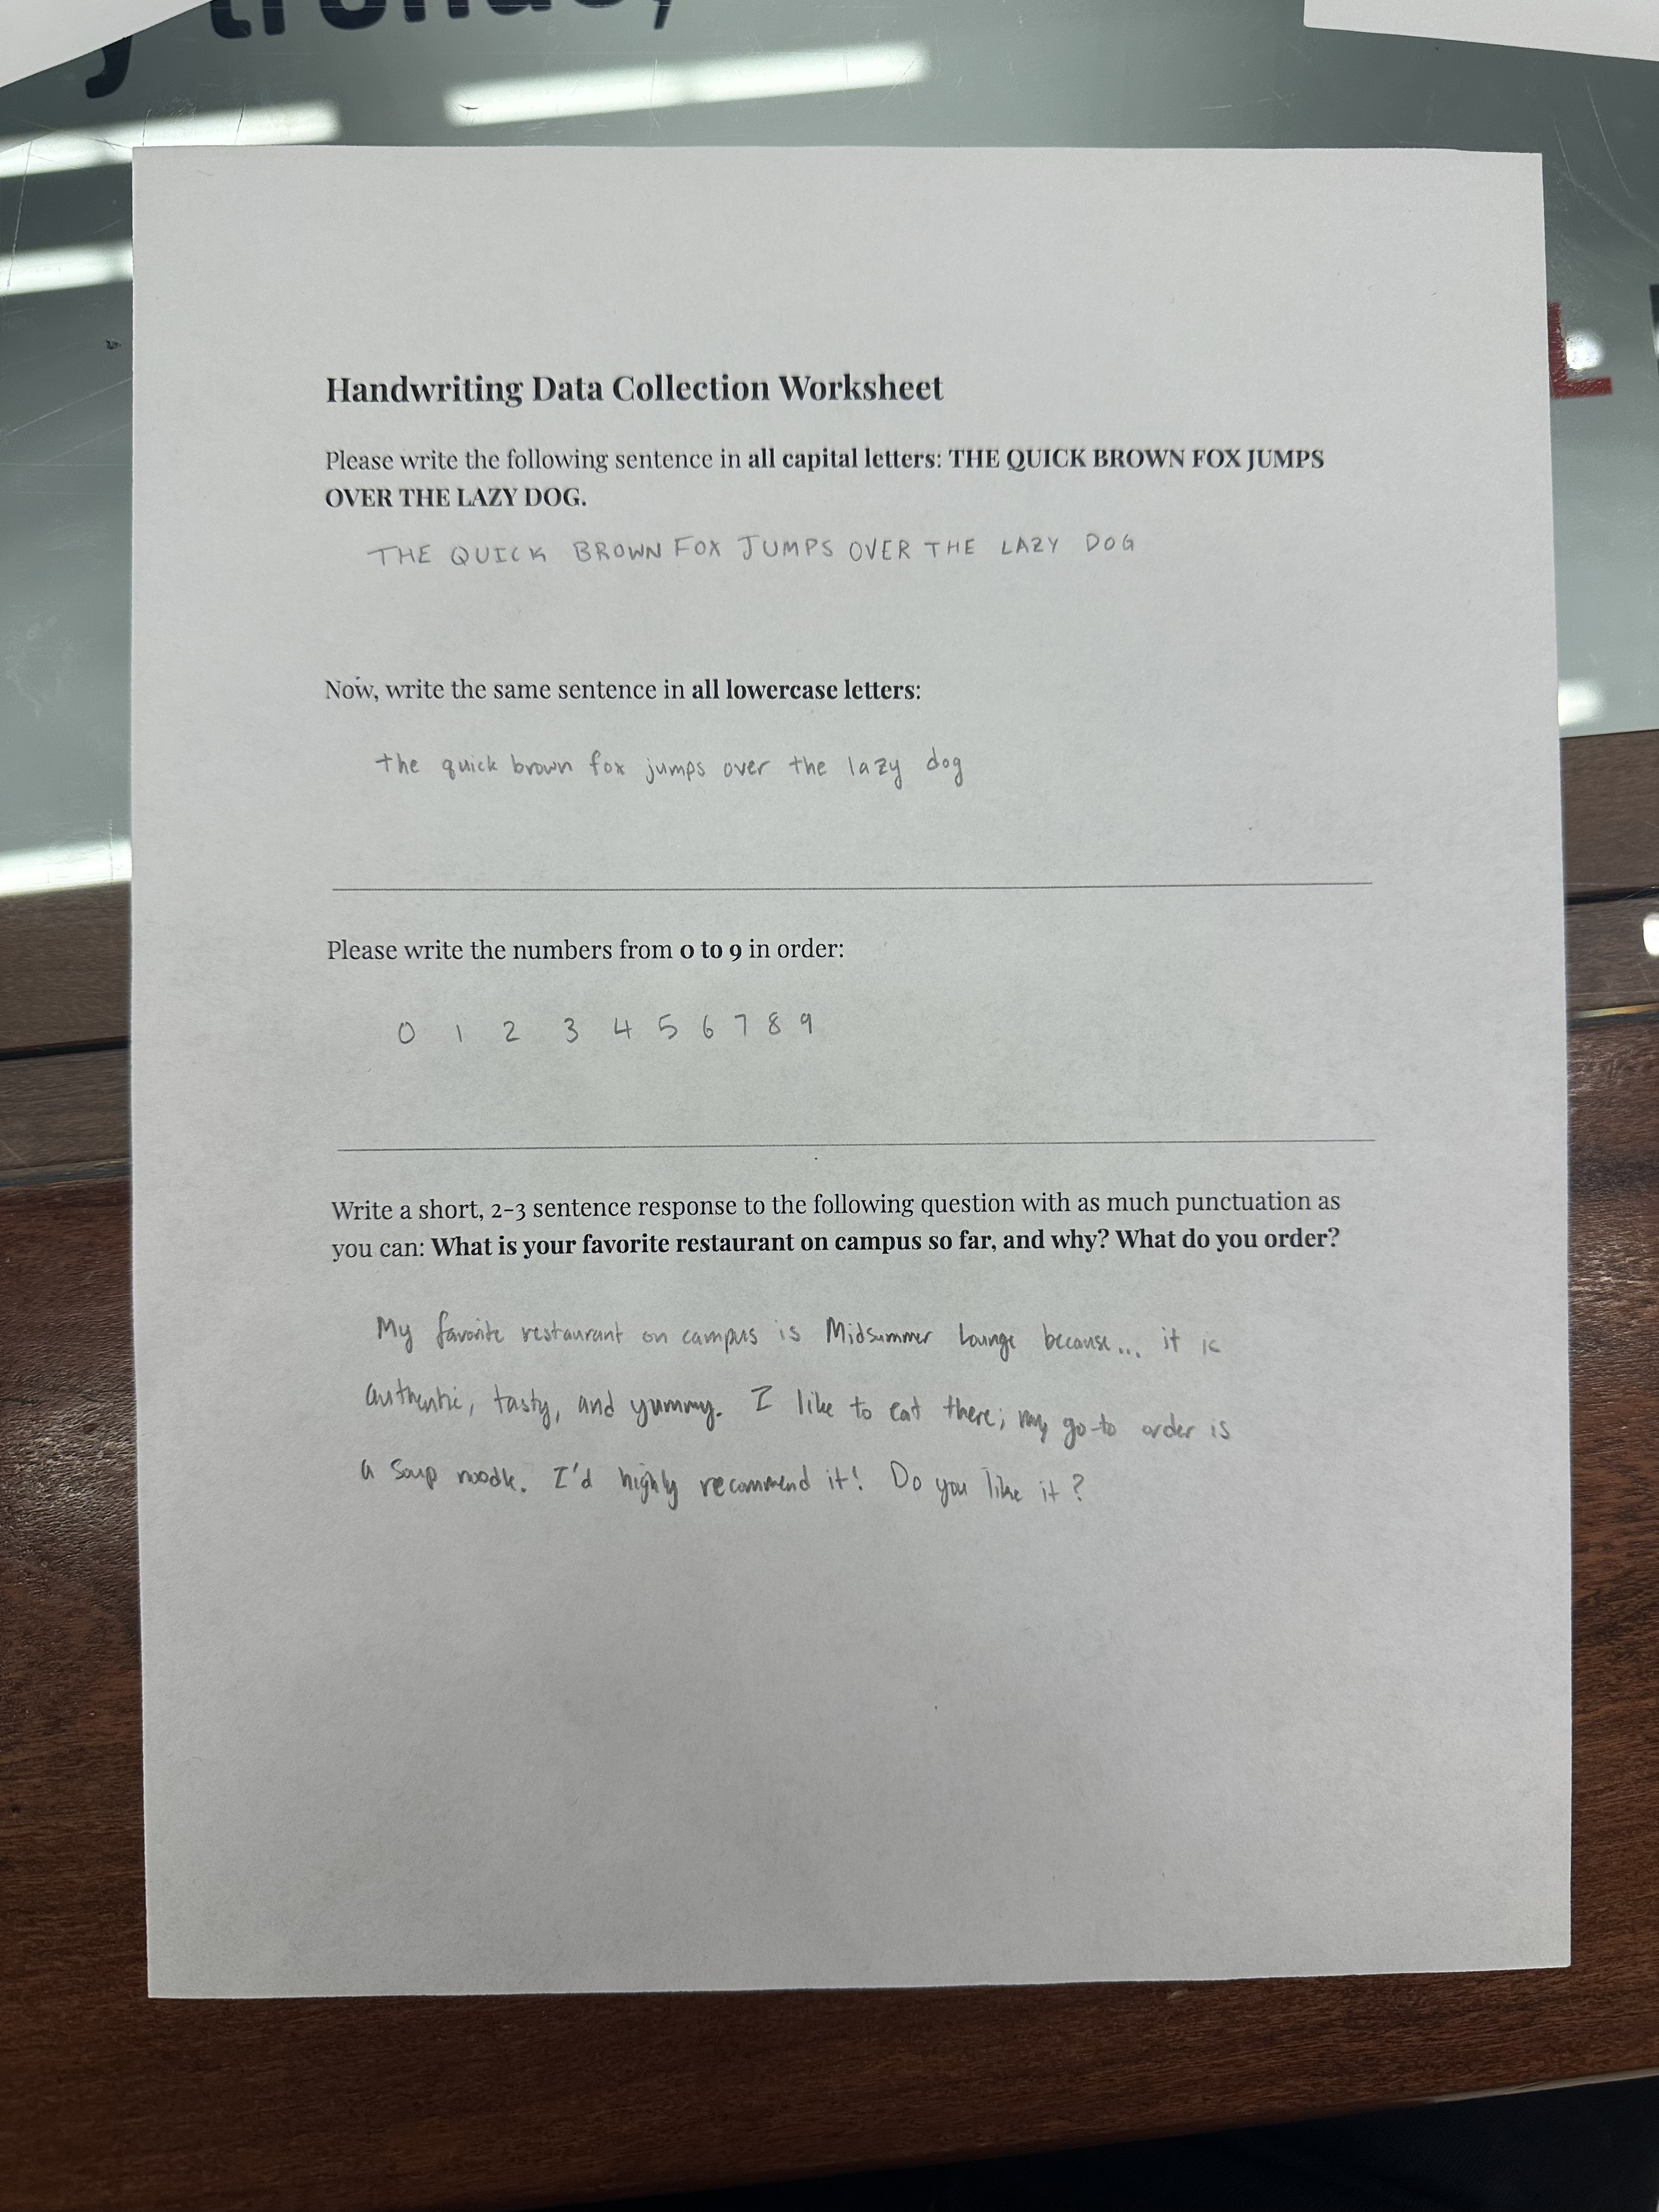 Handwriting Data Collection Worksheet
Please write the following sentence in all capital letters: THE QUICK BROWN FOX JUMPS
OVER THE LAZY DOG.
THE QUICK BROWN FOX JUMPS OVER THE LAZY DOG
Now, write the same sentence in all lowercase letters:
the quick brown fox jumps over the lazy dog
Please write the numbers from 0 to 9 in order:
0 1 2 3 4 5 6 7 8 9
Write a short, 2-3 sentence response to the following question with as much punctuation as
you can: What is your favorite restaurant on campus so far, and why? What do you order?
My favorite restaurant on campus is Midsummer Lounge because... it is
authentic, tasty, and yummy. I like to eat there; my go-to order is
a Soup noodle. I'd highly recommend it! Do you like it?